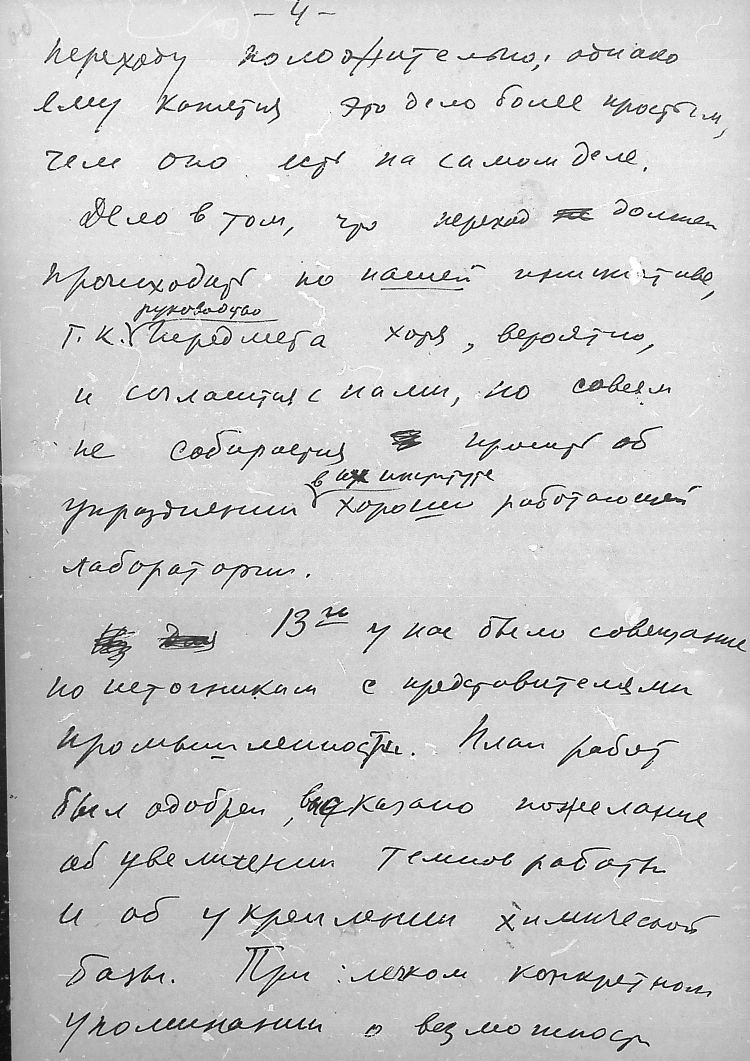 – 4 –
переходу положительно; однако
ему кажется это дело более простым,
чем оно есть на самом деле.
Дело в том, что переход должен
происходить по нашей инициативе,
руководство
т.к. Передмета хотя, вероятно,
и согласится с нами, но совсем
не собирается просить об
в их институте
упразднении хорошо работающей
лаборатории.
13го у нас было совещание
по источникам с представителями
промышленности. План работ
был одобрен, высказано пожелание
об увеличении темпов работы
и об укреплении химической
базы. При легком конкретном
упоминании о возможност